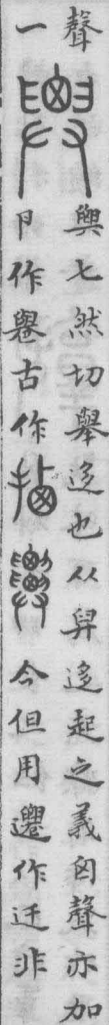 聲
一
七然切舉迻也从舁迻起之義囟聲亦加
卪作䙴古作 今但用遷作迁非